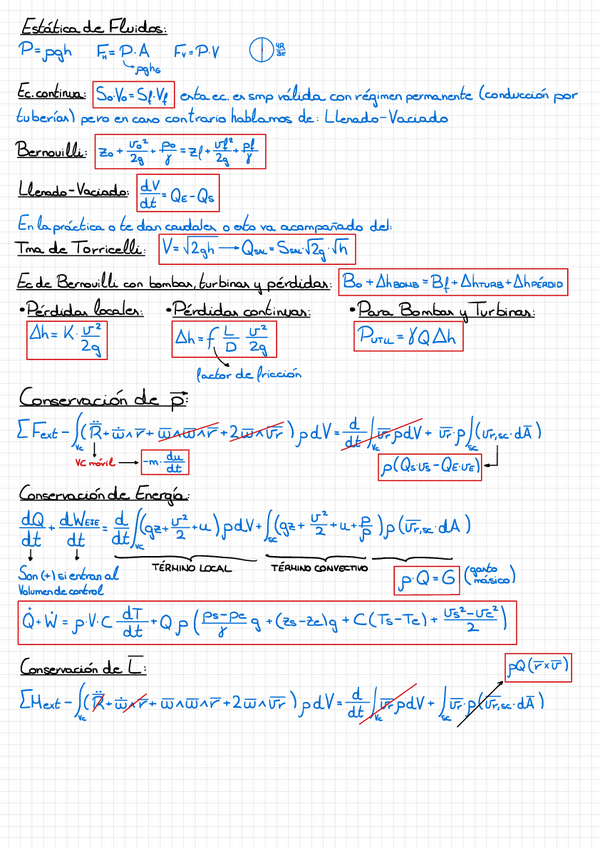 Estática de Fluidos:
P = ρgh   F_H = P·A   F_V = P·V   4R/3π
ρgh_G
Ec. continua: S₀·V₀ = S_f·V_f esta ec. es smp válida con régimen permanente (conducción por
tuberías) pero en caso contrario hablamos de: Llenado-Vaciado
Bernouilli: z₀ + v₀²/2g + p₀/γ = z_f + v_f²/2g + p_f/γ
Llenado-Vaciado: dV/dt = Q_E - Q_S
En la práctica o te dan caudales o esto va acompañado del:
Tma de Torricelli: V = √2gh → Q_SAL = S_SAL·√2g·√h
Ec de Bernouilli con bombas, turbinas y pérdidas: B₀ + Δh_BOMB = B_f + Δh_TURB + Δh_PÉRDID
• Pérdidas locales:   • Pérdidas continuas:   • Para Bombas y Turbinas:
Δh = K · v²/2g   Δh = f L/D v²/2g   P_UTIL = γQΔh
factor de fricción
Conservación de p̅:
ΣF_ext - ∫_VC (R̈ + ẇ∧r + w̅∧w̅∧r̅ + 2w̅∧v̅r) ρdV = d/dt ∫_VC v̅r ρdV + v̅r·ρ∫_SC (v_r,sc·dA̅)
VC móvil → -m · du/dt   ρ(Q_S·v_S - Q_E·v_E)
Conservación de Energía:
dQ/dt + dW_EJE/dt = d/dt ∫_VC (gz + v²/2 + u) ρdV + ∫_SC (gz + v²/2 + u + p/ρ) ρ(v̅_r,sc·dA)
Son (+) si entran al   TÉRMINO LOCAL   TÉRMINO CONVECTIVO   ρ·Q = G (gasto
Volumen de control   másico)
Q̇ + Ẇ = ρ·V·C dT/dt + Qρ (ps-pe/γ g + (zs-ze)g + C(Ts-Te) + vs²-ve²/2)
Conservación de L̅:   ρQ(r̅×v̅)
ΣM_ext - ∫_VC (R̈ + ẇ∧r + w̅∧w∧r + 2w̅∧v̅r) ρdV = d/dt ∫_VC v̅r ρdV + ∫_SC v̅r·ρ(v̅_r,sc·dA̅)